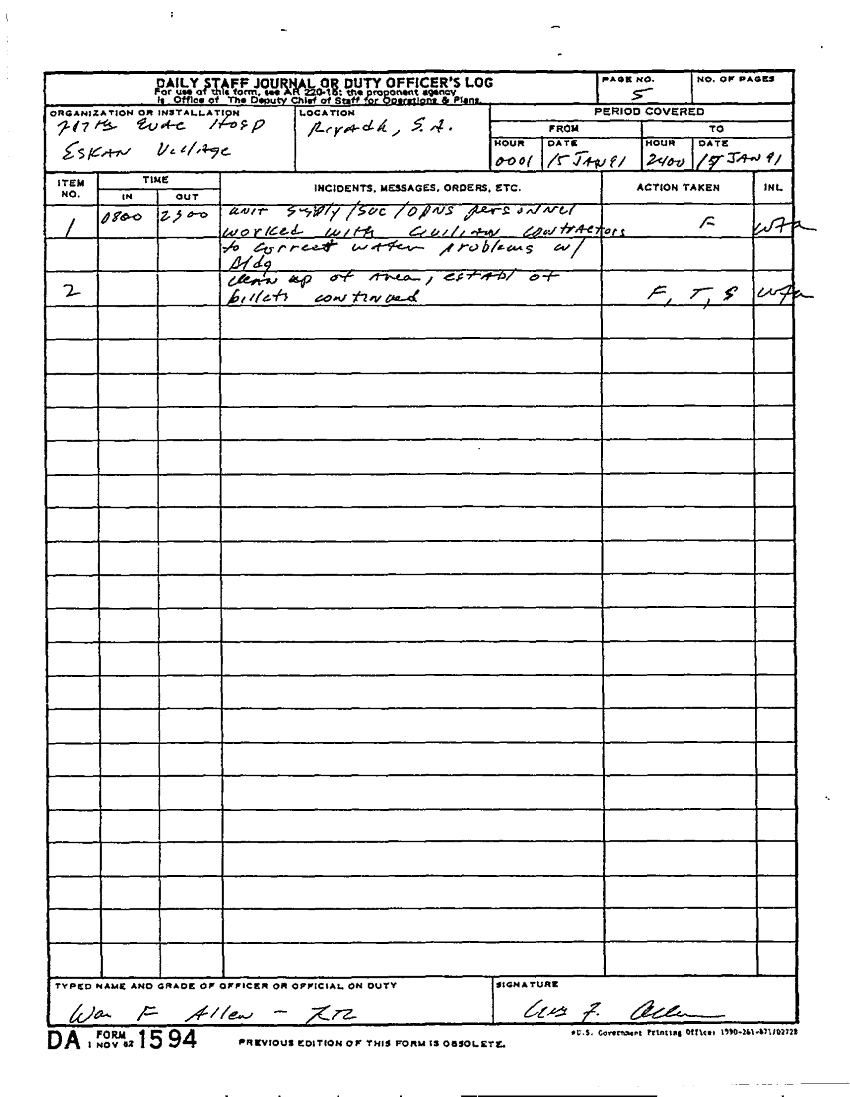 DAILY STAFF JOURNAL OR DUTY OFFICER'S LOG
For use of this form, see AR 220-15; the proponent agency
is Office of The Deputy Chief of Staff for Operations & Plans.
PAGE NO.
5
NO. OF PAGES
ORGANIZATION OR INSTALLATION
217th Evac Hosp
ESKAN Village
LOCATION
Riyadh, S.A.
PERIOD COVERED
FROM
TO
HOUR
DATE
HOUR
DATE
0001
15 JAN 91
2400
15 JAN 91
ITEM NO.
TIME
IN
OUT
INCIDENTS, MESSAGES, ORDERS, ETC.
ACTION TAKEN
INL
1 0800 2300 unit supply/svc/opns personnel
worked with civilian contractors F wfa
to correct water problems w/
Bldg
2 clean up of area, establ of
billets continued F, T, S wfa
TYPED NAME AND GRADE OF OFFICER OR OFFICIAL ON DUTY
F Allen -
SIGNATURE
F. Allen
DA FORM 1 NOV 62 1594
PREVIOUS EDITION OF THIS FORM IS OBSOLETE.
*U.S. Government Printing Office: 1990-261-871/02728